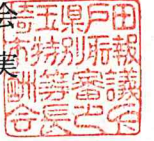 埼玉県戸田
市特別職報
酬等審議
会長之印